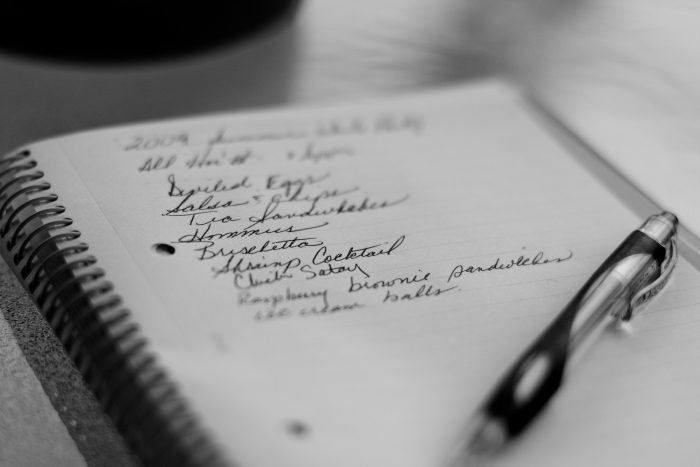 2009 Summer White Party
All
Deviled Eggs
Salsa & Chips
Tea Sandwhiches
Hommus
Brischetta
Shrimp Cocktail
Satay
Raspbury brownie sandwiches
ice cream balls.